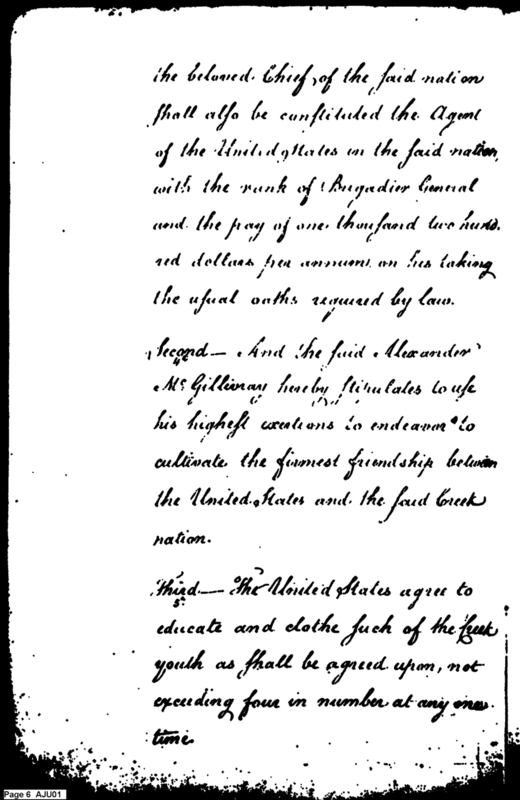 the beloved Chief, of the said nation
shall also be constituted the Agent
of the United States in the said nation,
with the rank of Brigadier General
and the pay of one thousand two hund-
red dollars per annum, on his taking
the usual oaths required by law.
Second — And the said Alexander
4
McGillivray hereby stipulates to use
his highest exertions to endeavor to
cultivate the firmest friendship between
the United States and the said Creek
nation.
Third — The United States agree to
5
educate and clothe such of the Creek
youth as shall be agreed upon, not
exceeding four in number at any one
time.
Page 6 AJU01